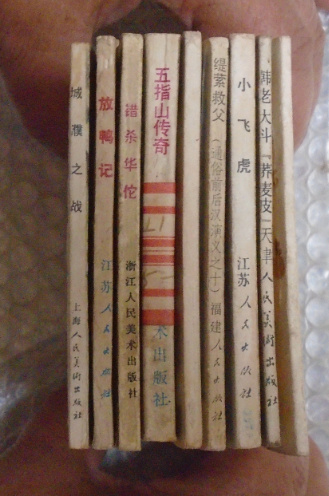 城濮之战
上海人民美术出版社
放鸭记
江苏人民出版社
错杀华佗
浙江人民美术出版社
五指山传奇
术出版社
缇萦救父（通俗前后汉演义之十）福建人民出版社
小飞虎
江苏人民出版社
韩老大斗“荞麦皮”天津人民美術出版社